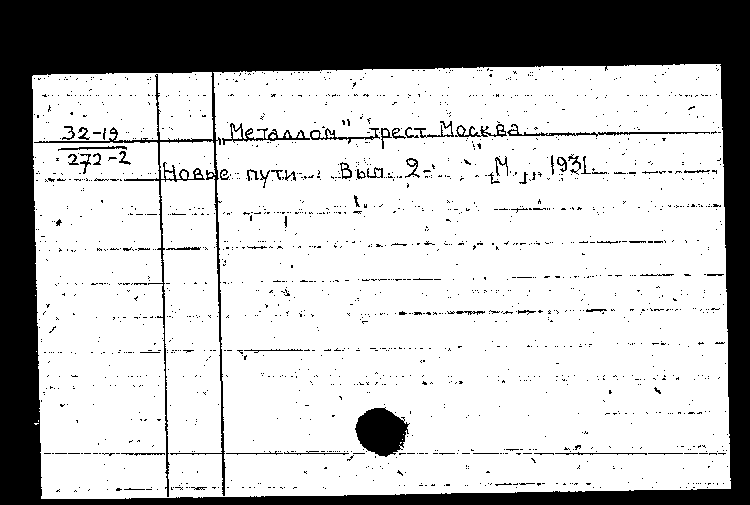 32-19
272-2
„Металлом", трест Москва.
Новые пути. Вып. 2- [М.], 1931.